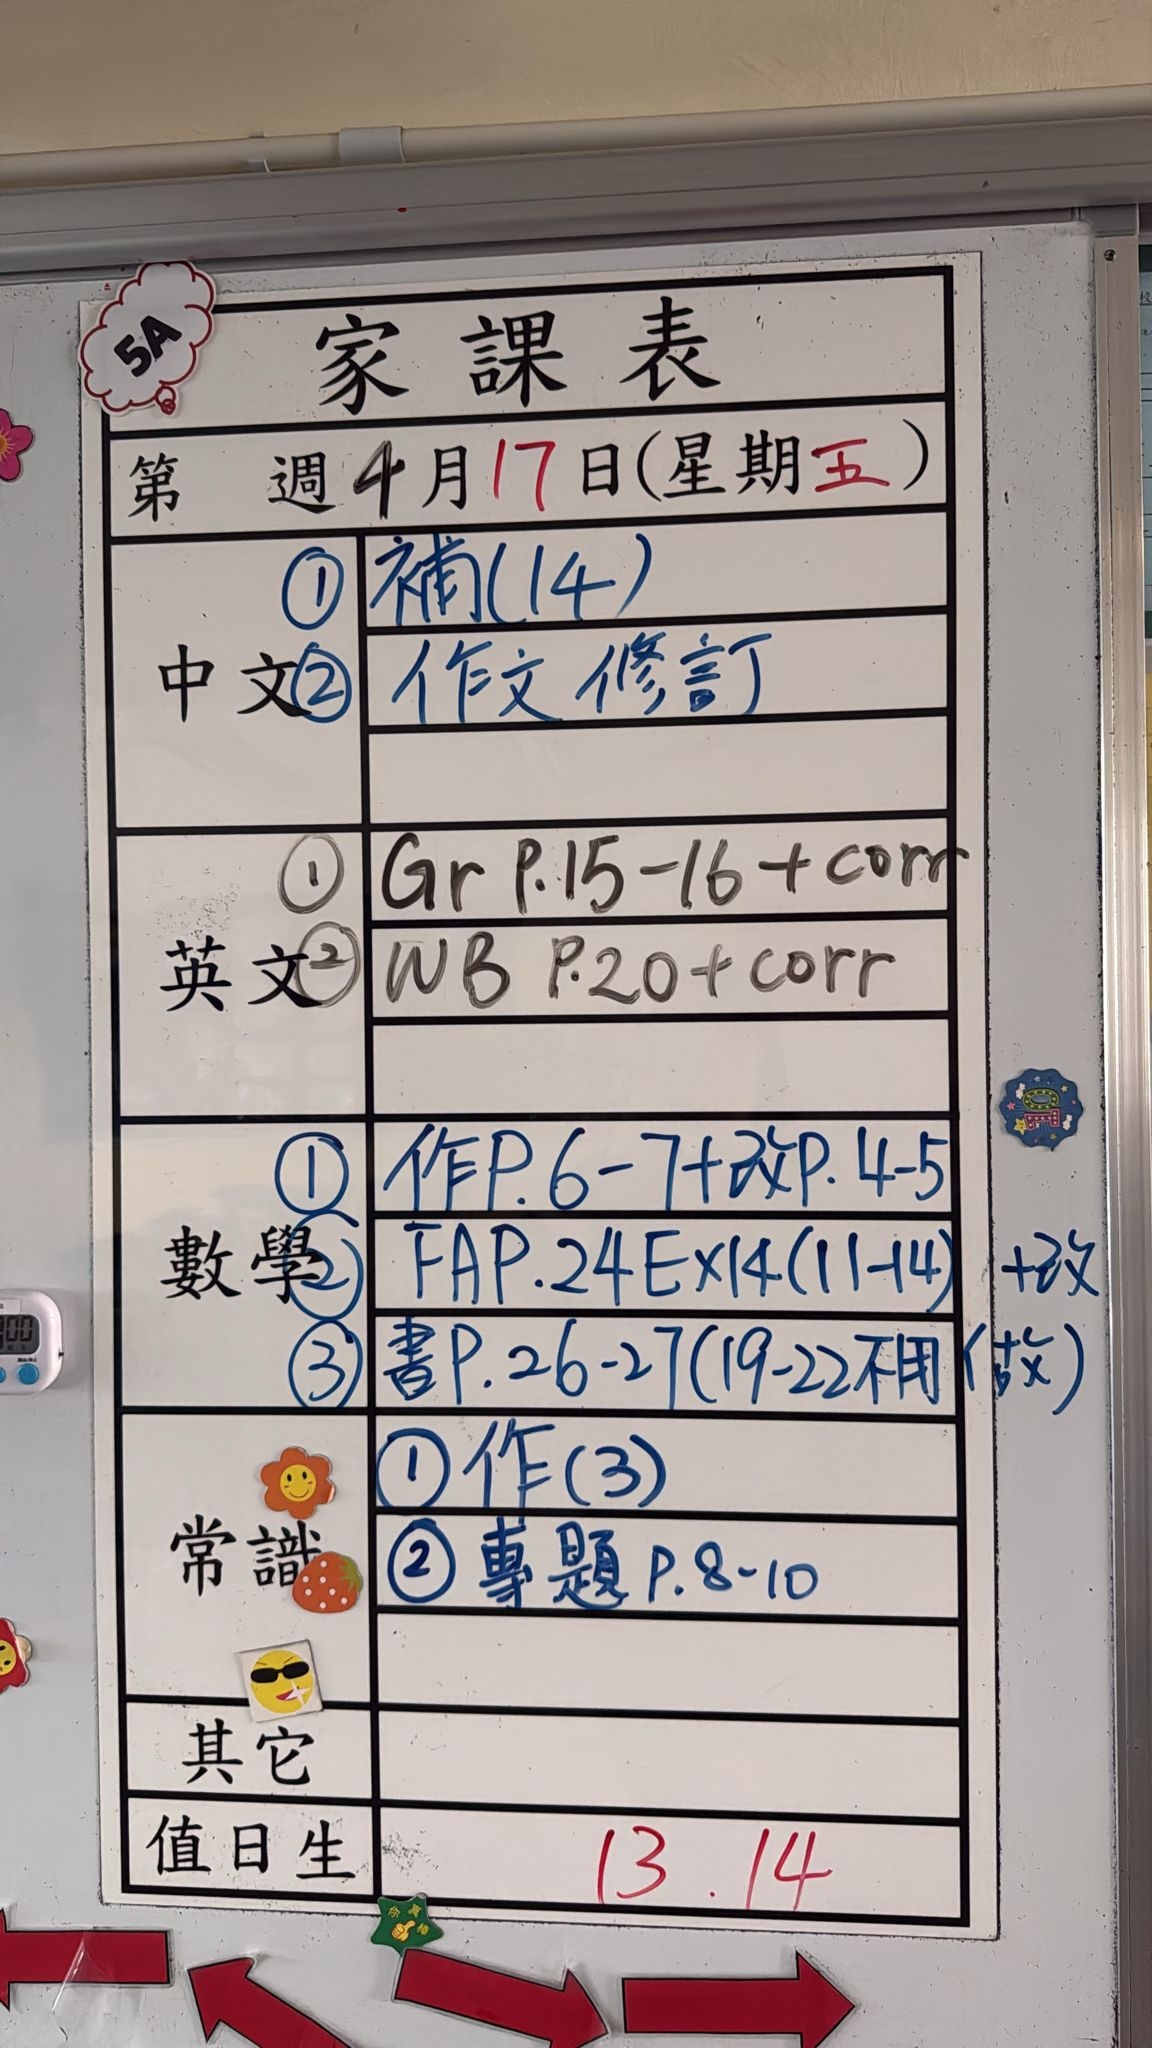 5A
家課表
第 週 4月17日(星期五)
中文
① 補(14)
② 作文修訂
英文
① Gr P.15-16 + corr
② WB P.20 + corr
數學
① 作P.6-7+改P.4-5
② FAP.24Ex14(11-14) +改
③ 書P.26-27(19-22不用做)
常識
① 作(3)
② 專題 P.8-10
其它
值日生 13.14